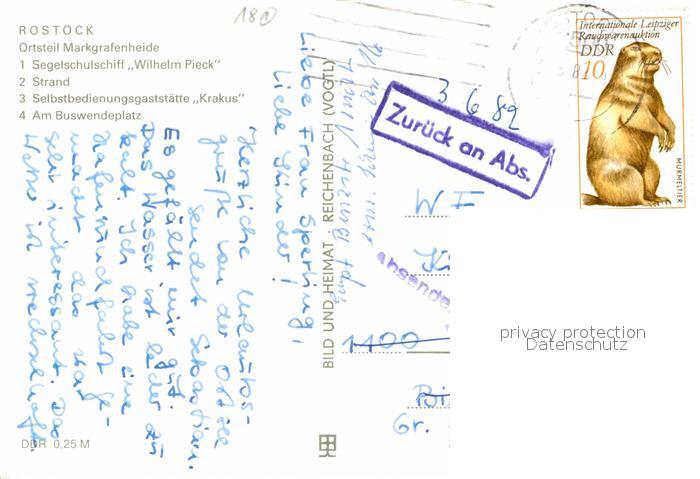 18@
ROSTOCK
Ortsteil Markgrafenheide
1 Segelschulschiff „Wilhelm Pieck"
2 Strand
3 Selbstbedienungsgaststätte „Krakus"
4 Am Buswendeplatz
Liebe Frau Sperling,
liebe Kinder!
Herzliche Urlaubs-
grüße von der Ostsee
sendet Sebastian.
Es gefällt mir gut.
Das Wasser ist leider
kalt. Ich habe eine
Hafenrundfahrt ge-
macht das war
sehr interessant. Das
Wetter ist wechselhaft.
DDR 0,25 M
BILD UND HEIMAT REICHENBACH (VOGTL)
3 6 82
Zurück an Abs.
WF
absende
1400
Gr.
Internationale Leipziger
Rauchwarenauktion
DDR
10
MURMELTIER
privacy protection
Datenschutz